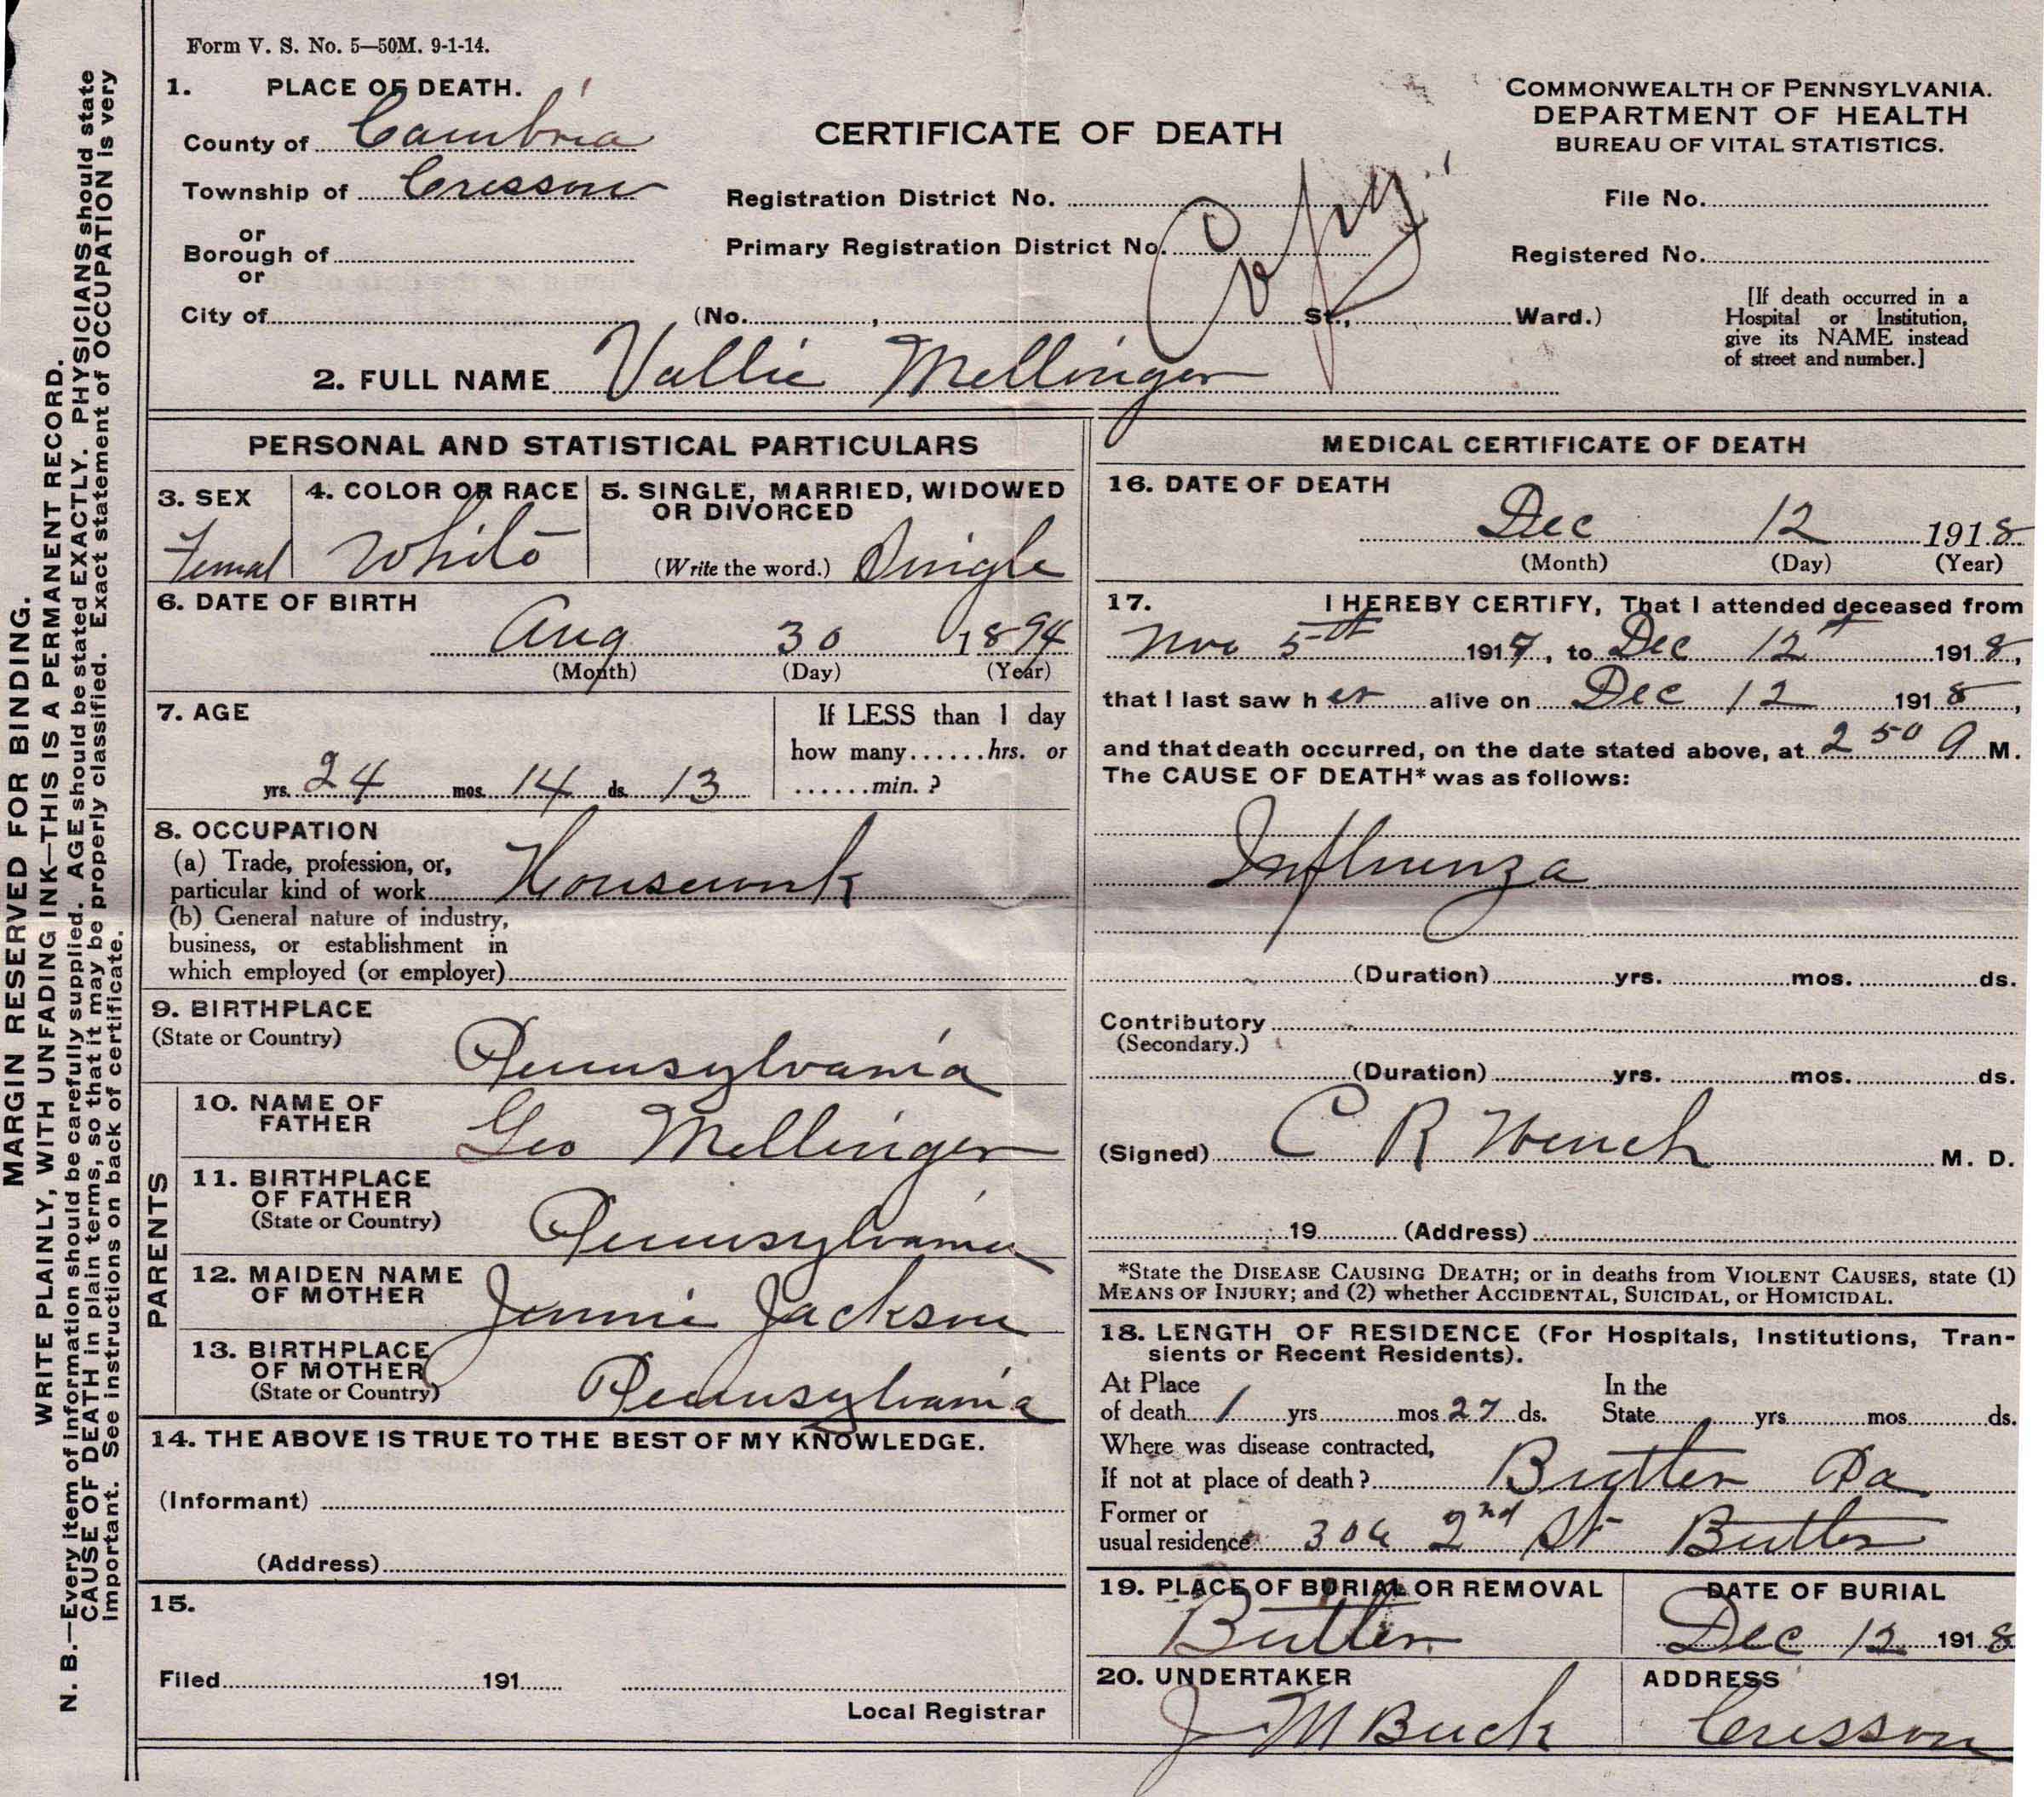 Form V. S. No. 5—50M. 9-1-14.
1. PLACE OF DEATH.
County of Cambria
Township of Cresson
or
Borough of
or
City of
CERTIFICATE OF DEATH
Registration District No.
Primary Registration District No.
Copy
(No. , St., Ward.)
COMMONWEALTH OF PENNSYLVANIA.
DEPARTMENT OF HEALTH
BUREAU OF VITAL STATISTICS.
File No.
Registered No.
[If death occurred in a
Hospital or Institution,
give its NAME instead
of street and number.]
2. FULL NAME Vallie Mellinger
PERSONAL AND STATISTICAL PARTICULARS
3. SEX
Femal
4. COLOR OR RACE
White
5. SINGLE, MARRIED, WIDOWED
OR DIVORCED
(Write the word.) Single
6. DATE OF BIRTH
Aug 30 1894
(Month) (Day) (Year)
7. AGE
yrs. 24 mos. 14 ds. 13
If LESS than 1 day
how many......hrs. or
......min. ?
8. OCCUPATION
(a) Trade, profession, or,
particular kind of work Housework
(b) General nature of industry,
business, or establishment in
which employed (or employer)
9. BIRTHPLACE
(State or Country)
Pennsylvania
PARENTS
10. NAME OF
FATHER
Geo Mellinger
11. BIRTHPLACE
OF FATHER
(State or Country)
Pennsylvania
12. MAIDEN NAME
OF MOTHER
Jennie Jackson
13. BIRTHPLACE
OF MOTHER
(State or Country)
Pennsylvania
14. THE ABOVE IS TRUE TO THE BEST OF MY KNOWLEDGE.
(Informant)
(Address)
15.
Filed 191
Local Registrar
MEDICAL CERTIFICATE OF DEATH
16. DATE OF DEATH
Dec 12 1918
(Month) (Day) (Year)
17. I HEREBY CERTIFY, That I attended deceased from
Nov 5th 1917, to Dec 12th 1918,
that I last saw her alive on Dec 12 1918,
and that death occurred, on the date stated above, at 2 50 M.
The CAUSE OF DEATH* was as follows:
Influenza
(Duration) yrs. mos. ds.
Contributory
(Secondary.)
(Duration) yrs. mos. ds.
(Signed) C R M. D.
19 (Address)
*State the DISEASE CAUSING DEATH; or in deaths from VIOLENT CAUSES, state (1)
MEANS OF INJURY; and (2) whether ACCIDENTAL, SUICIDAL, or HOMICIDAL.
18. LENGTH OF RESIDENCE (For Hospitals, Institutions, Tran-
sients or Recent Residents).
At Place
of death 1 yrs mos 27 ds.
In the
State yrs mos ds.
Where was disease contracted,
If not at place of death? Butler Pa
Former or
usual residence 306 2nd St Butler
19. PLACE OF BURIAL OR REMOVAL
Butler
DATE OF BURIAL
Dec 12 1918
20. UNDERTAKER
J M Buck
ADDRESS
Cresson
MARGIN RESERVED FOR BINDING.
WRITE PLAINLY, WITH UNFADING INK—THIS IS A PERMANENT RECORD.
N. B.—Every item of information should be carefully supplied. AGE should be stated EXACTLY. PHYSICIANS should state
CAUSE OF DEATH in plain terms, so that it may be properly classified. Exact statement of OCCUPATION is very
important. See instructions on back of certificate.